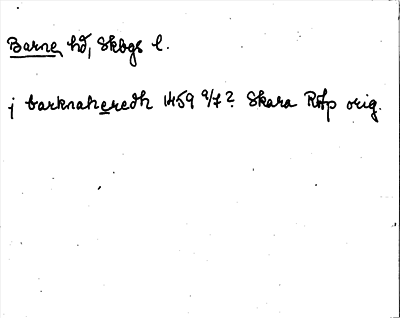 Barne hd, Skbgs l.
j barknaheredh 1459 9/7? Skara Rtfp orig.